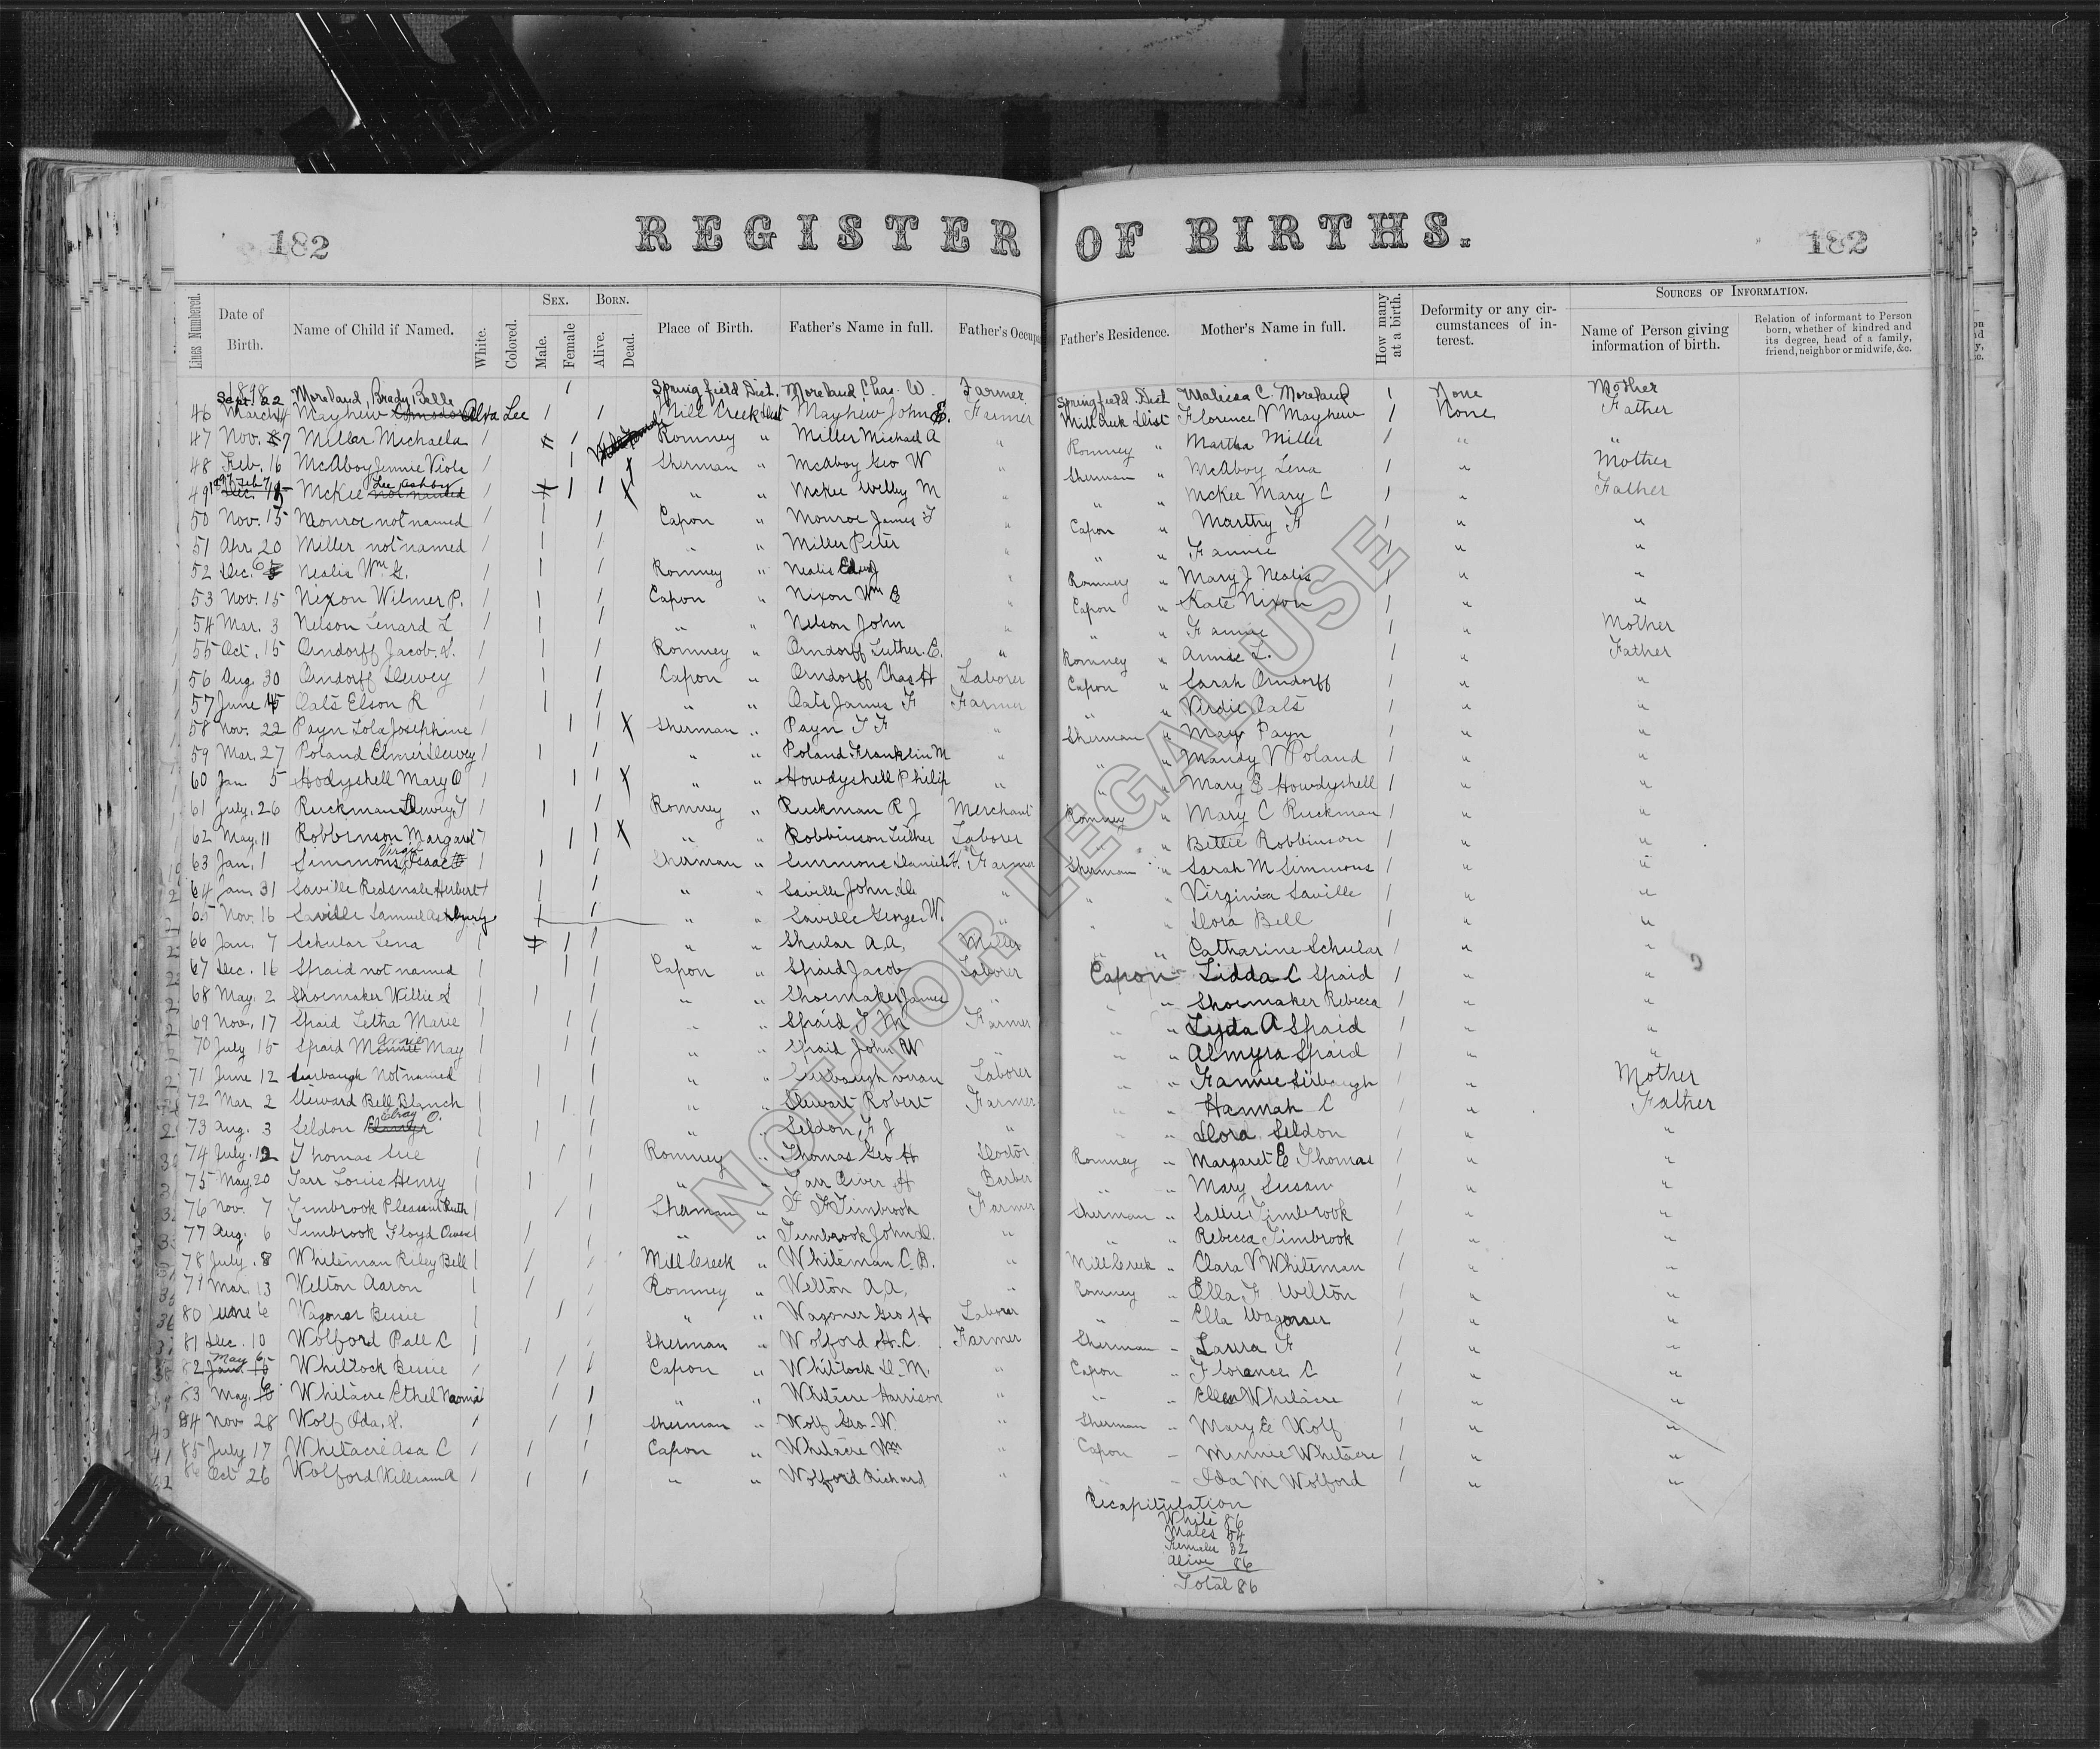 182 REGISTER OF BIRTHS. 182
Lines Numbered. Date of Birth. Name of Child if Named. White. Colored. Sex. Male. Female Born. Alive. Dead. Place of Birth. Father's Name in full. Father's Occupa Father's Residence. Mother's Name in full. How many at a birth. Deformity or any circumstances of interest. Sources of Information. Name of Person giving information of birth. Relation of informant to Person born, whether of kindred and its degree, head of a family, friend, neighbor or midwife, &c.
1898 Sept. 22 Moreland, Brady Belle / Springfield Dist. Moreland, Chas. W. Farmer Springfield Dist Malissa C. Moreland 1 None Mother
46 March 14 Mayhew Alva Lee / / Mill Creek Dist Mayhew John E. Farmer Mill Creek Dist Florence V Mayhew 1 None Father
47 Nov. 7 Miller Michaela / / Romney " Miller Michael A " Romney " Martha Miller 1 " "
48 Feb. 16 McAboy Jennie Viola / / Sherman " McAboy Geo W " Sherman " McAboy Lena 1 " Mother
49 1897 Feb McKee Lee Ashby not named / / / X " " McKee Willey M " " " McKee Mary C 1 " Father
50 Nov. 15 Monroe not named / / / Capon " Monroe James F " Capon " Marthy F 1 " "
51 Apr. 20 Miller not named / / / " " Miller Peter " " " Fannie 1 " "
52 Dec. 6 Nealis Wm. G. / / / Romney " Nealis " Romney " Mary J Nealis 1 " "
53 Nov. 15 Nixon Wilmer P. / / / Capon " Nixon Wm " Capon " Kate Nixon 1 " "
54 Mar. 3 Nelson Lenard L / / / " " Nelson John " " " Fannie 1 " Mother
55 Oct. 15 Orndorff Jacob. S. / / / Romney " Orndorff Luther. E. " Romney " Annie L. 1 " Father
56 Aug. 30 Orndorff Dewey / / / Capon " Orndorff Chas H Laborer Capon " Sarah Orndorff 1 " "
57 June Oats Elson R / / / " " Oats James F Farmer " " Virdie Oats 1 " "
58 Nov. 22 Payn Lola Josephine / / / X Sherman " Payn T F " Sherman " Mary Payn 1 " "
59 Mar. 27 Poland Elmer Dewey / / / " " Poland Franklin M " " " Mandy V Poland 1 " "
60 Jan 5 Hodyshell Mary O / / / X " " Howdyshell Philip " " " Mary E Howdyshell 1 " "
61 July. 26 Ruckman Dewey T / / / Romney " Ruckman R J Merchant Romney " Mary C Ruckman 1 " "
62 May. 11 Robbinson Margaret / / / X " " Robbinson Luther Laborer " " Bettie Robbinson 1 " "
63 Jan. 1 Simmons, Virgil Isaac / / / Sherman " Simmons Daniel H. Farmer Sherman " Sarah M Simmons 1 " "
64 Jan. 31 Saville Redsnale Herbert / / / " " Saville John. D. " " " Virginia Saville 1 " "
65 Nov. 16 Saville Samuel Ashbury / / " " Saville George W. " " " Dora Bell 1 " "
66 Jan. 7 Schular Lena / / / " " Shular A. A. Miller " " Catharine Schular 1 " "
67 Dec. 16 Spaid not named / / / Capon " Spaid Jacob Laborer Capon " Lidda C Spaid 1 " "
68 May. 2 Shoemaker Willie S / / / " " Shoemaker James " " " Shoemaker Rebecca 1 " "
69 Nov. 17 Spaid Letha Marie / / / " " Spaid J M Farmer " " Lyda A Spaid 1 " "
70 July 15 Spaid May / / / " " Spaid John W " " " Almyra Spaid 1 " "
71 June 12 Not named / / / " " Laborer " " Fannie Sirbaugh 1 " Mother
72 Mar. 2 Steward Bell Blanch / / / " " Stewart Robert Farmer " " Hannah C 1 " Father
73 Aug. 3 Seldon Elray O. / / / " " Seldon, F J " " " Dora Seldon 1 " "
74 July. 12 Thomas Sue / / / Romney " Thomas Geo H Doctor Romney " Margaret E Thomas 1 " "
75 May. 20 Tarr Louis Henry / / / " " Tarr Oliver H Barber " " Mary Susan 1 " "
76 Nov. 7 Timbrook Pleasant Ruth / / / Sherman " F F Timbrook Farmer Sherman " Sallie Timbrook 1 " "
77 Aug. 6 Timbrook Floyd Owen / / / " " Timbrook John D. " " " Rebecca Timbrook 1 " "
78 July. 8 Whiteman Riley Bell / / / Mill Creek " Whiteman C. B. " Mill Creek " Clara V Whiteman 1 " "
79 Mar. 13 Welton Aaron / / / Romney " Welton A. A. " Romney " Ella F Welton 1 " "
80 June 6 Wagoner Bessie / / / " " Wagoner Geo H Laborer " " Ella Wagoner 1 " "
81 Dec. 10 Wolford Pall C / / / Sherman " Wolford H. C. Farmer Sherman " Laura F 1 " "
82 May 6 Whitlock Bessie / / / Capon " Whitlock D. M. " Capon " Florence C 1 " "
83 May. 6 Whitacre Ethel Naomi / / / " " Whitacre Harrison " " " Ellen Whitacre 1 " "
84 Nov 28 Wolf Ida. V. / / / Sherman " Wolf Geo. W. " Sherman " Mary E Wolf 1 " "
85 July 17 Whitacre Asa C / / / Capon " Whitacre Wm " Capon " Minnie Whitacre 1 " "
86 Oct 26 Wolford William A / / / " " Wolford Richard " " " Ida M Wolford 1 " "
Recapitulation
White 86
Males 54
Females 32
Alive 86
Total 86
NOT FOR LEGAL USE